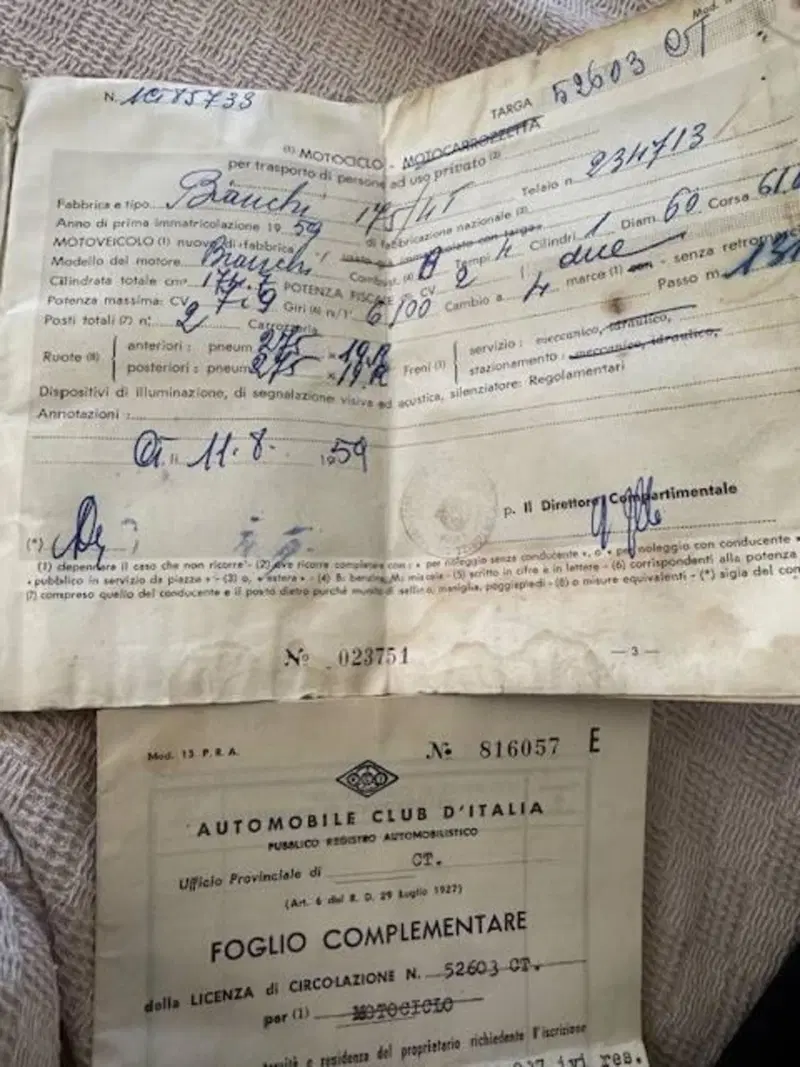 N.
TARGA 52603 CT
(1) MOTOCICLO - MOTOCARROZZETTA
per trasporto di persone ad uso privato (2)
Fabbrica e tipo Bianchi 175/4T Telaio n. 234713
Anno di prima immatricolazione 19 59 di fabbricazione nazionale (3)
MOTOVEICOLO (1) nuovo di fabbrica con targa
Modello del motore Bianchi Combust. (4) B Tempi 4 Cilindri 1 Diam. 60 Corsa
Cilindrata totale cm³ 174.7 POTENZA FISCALE CV 2 ( due
Potenza massima: CV 7.9 Giri (6) n/1' 6100 Cambio a 4 marce (1) con - senza
Posti totali (7) n. 2 Carrozzeria Passo m.
Ruote (8) anteriori: pneum. 275 × 19 R
posteriori: pneum. 275 × 19 R
Freni (1) servizio: meccanico, idraulico,
stazionamento: meccanico, idraulico,
Dispositivi di illuminazione, di segnalazione visiva ed acustica, silenziatore: Regolamentari
Annotazioni:
CT. li 11.8. 1959
p. Il Direttore Compartimentale
(*)
(1) depennare il caso che non ricorre - (2) ove ricorre completare con: « per noleggio senza conducente », o « per noleggio con conducente »
« pubblico in servizio da piazza » - (3) o, « estera » - (4) B: benzina, M: miscela - (5) scritto in cifre e in lettere - (6) corrispondenti alla potenza
(7) compreso quello del conducente e il posto dietro purché munito di sellino, maniglia, poggiapiedi - (8) o misure equivalenti - (*) sigla del
Nº 023751
— 3 —
Mod. 13 P. R. A.
Nº 816057 E
AUTOMOBILE CLUB D'ITALIA
PUBBLICO REGISTRO AUTOMOBILISTICO
Ufficio Provinciale di CT.
(Art. 6 del R. D. 29 Luglio 1927)
FOGLIO COMPLEMENTARE
della LICENZA di CIRCOLAZIONE N. 52603 CT.
per (1) MOTOCICLO
e residenza del proprietario richiedente l'iscrizione
ivi res.